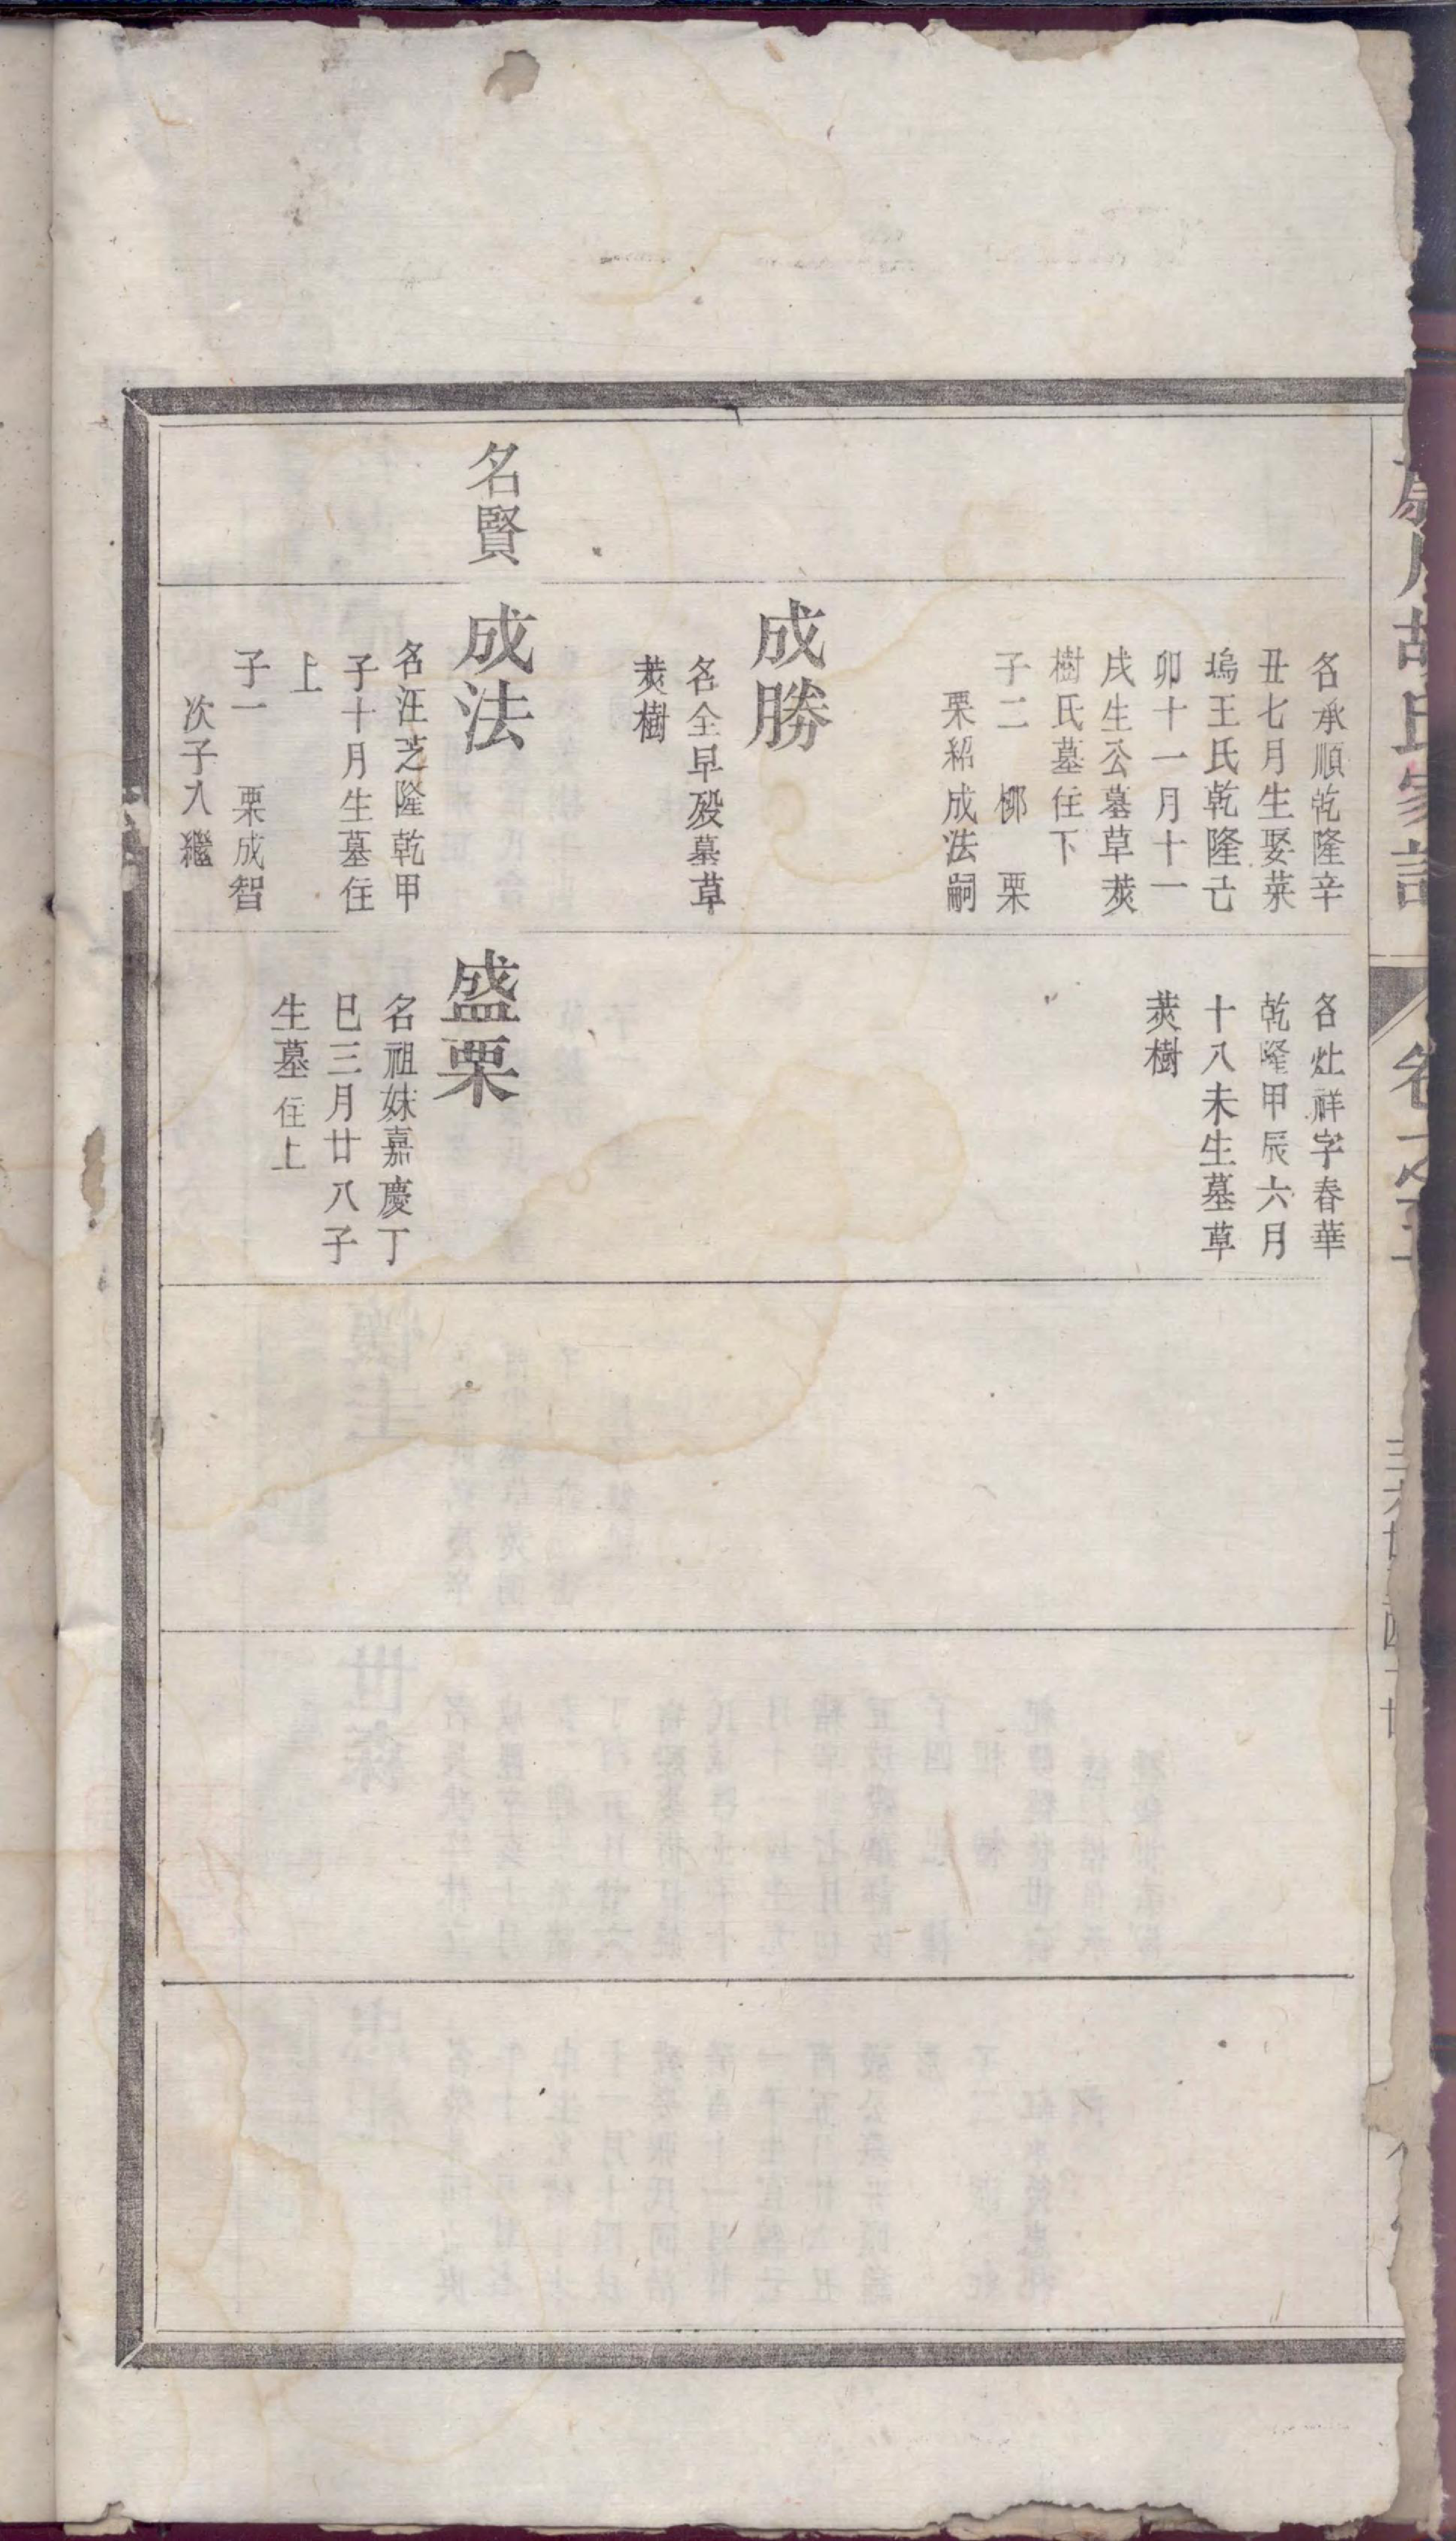 胡氏家
卷之五
名承順乾隆辛
丑七月生娶菜
塢王氏乾隆己
卯十一月十一
戌生公墓草蓂
樹氏墓住下
子二 㭨 栗
栗紹成法嗣
成勝
名全早殁墓草
樹
名賢
成法
名汪芝隆乾甲
子十月生墓住
上
子一 栗成智
次子入繼
名灶祥字春華
乾隆甲辰六月
十八未生墓草
樹
盛栗
名祖妹嘉慶丁
巳三月廿八子
生墓住上